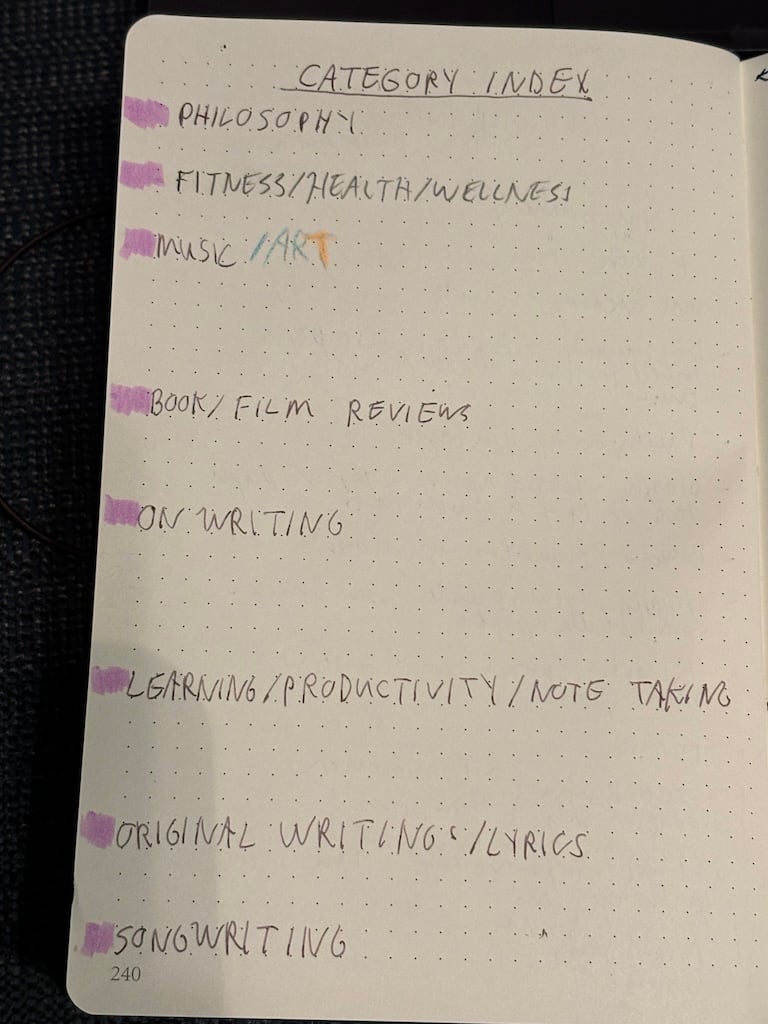 CATEGORY INDEX
PHILOSOPHY
FITNESS/HEALTH/WELLNESS
MUSIC /ART
BOOK/ FILM REVIEWS
ON WRITING
LEARNING/PRODUCTIVITY/NOTE TAKING
ORIGINAL WRITINGS/LYRICS
SONGWRITING
240